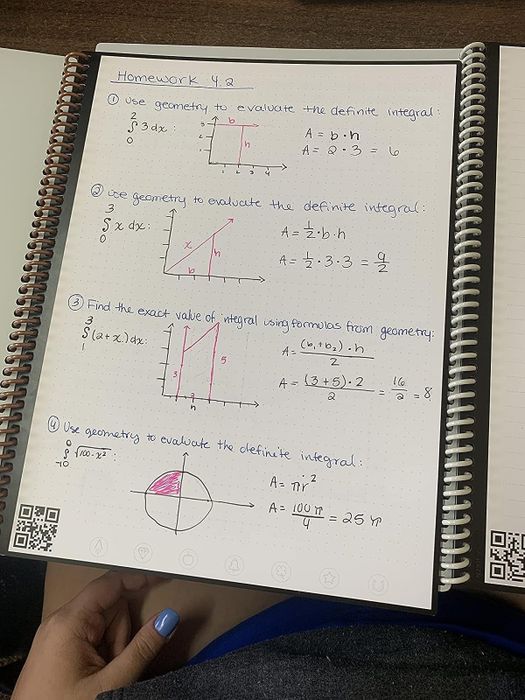 Homework 4.2
① Use geometry to evaluate the definite integral:
2
∫ 3 dx :
0
b
h
3
2
1
1 2 3 4
A = b · h
A = 2 · 3 = 6
② use geometry to evaluate the definite integral:
3
∫ x dx:
0
x
h
b
A = 1/2 · b · h
A = 1/2 · 3 · 3 = 9/2
③ Find the exact value of integral using formulas from geometry:
3
∫ (2+x) dx:
1
3
5
2
h
A = (b₁+b₂) · h / 2
A = (3+5) · 2 / 2 = 16/2 = 8
④ Use geometry to evaluate the definite integral:
0
∫ √100-x² :
-10
A = πr²
A = 100π/4 = 25π